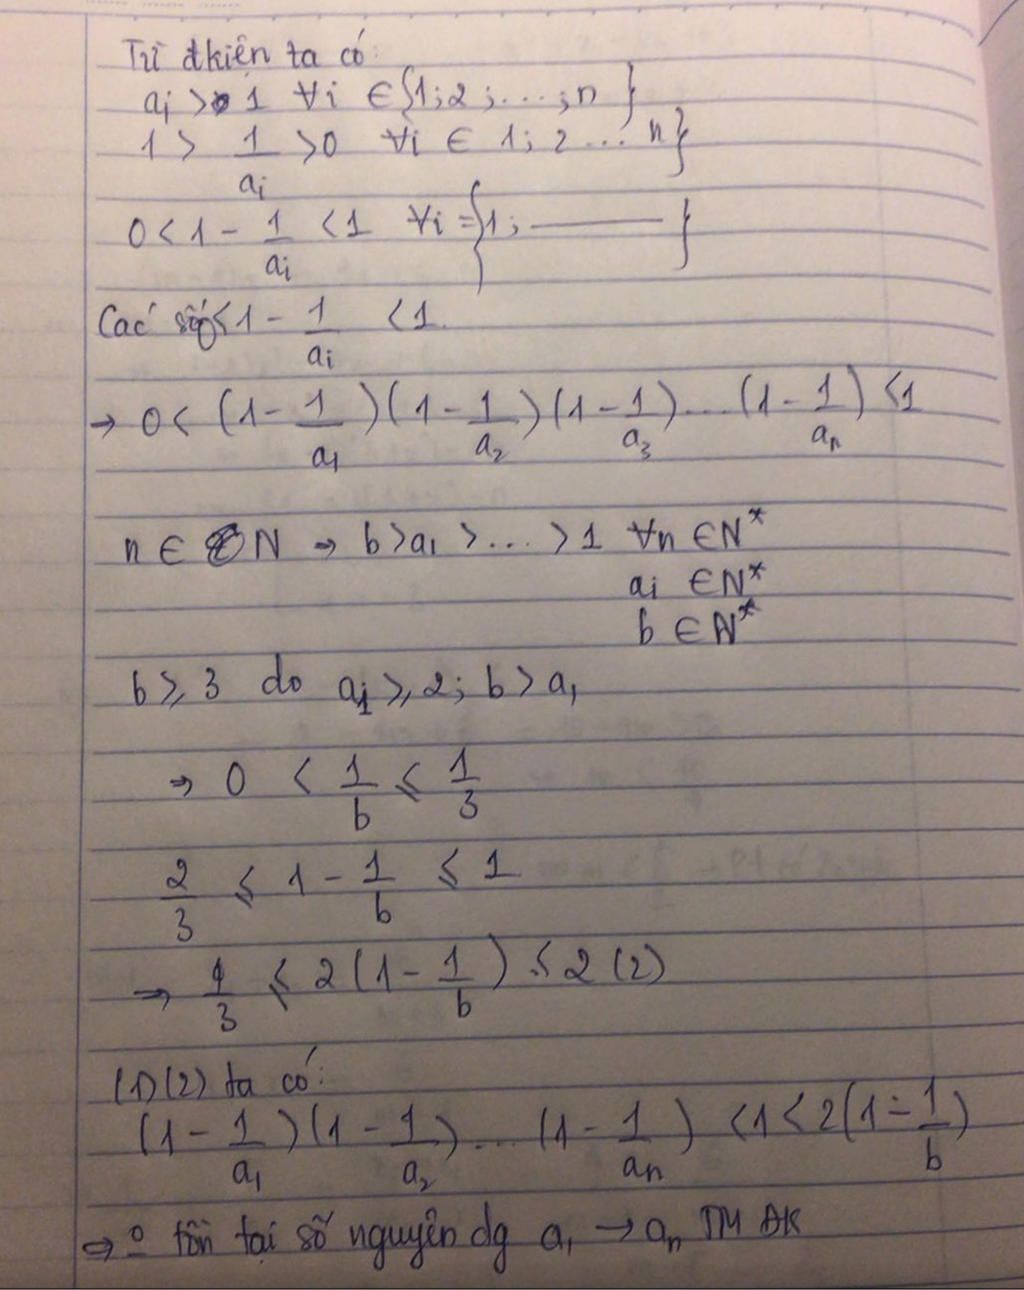 Từ đkiện ta có:
ai > 1 ∀i ∈ {1;2;...;n}
1 > 1/ai > 0 ∀i ∈ 1; 2 ... n}
0 < 1 - 1/ai < 1 ∀i = {1; ——— }
Các số < 1 - 1/ai < 1.
→ 0 < (1 - 1/a1)(1 - 1/a2)(1 - 1/a3)...(1 - 1/an) < 1
n ∈ N → b > a1 > ... > 1 ∀n ∈ N*
ai ∈ N*
b ∈ N*
b ⩾ 3 do ai ⩾ 2; b > a1
→ 0 < 1/b ⩽ 1/3
2/3 ⩽ 1 - 1/b ⩽ 1
→ 4/3 ⩽ 2(1 - 1/b) ⩽ 2 (2)
(1)(2) ta có:
(1 - 1/a1)(1 - 1/a2)...(1 - 1/an) < 1 < 2(1 - 1/b)
⇒ o tồn tại số nguyên dg a1 → an TM ĐK